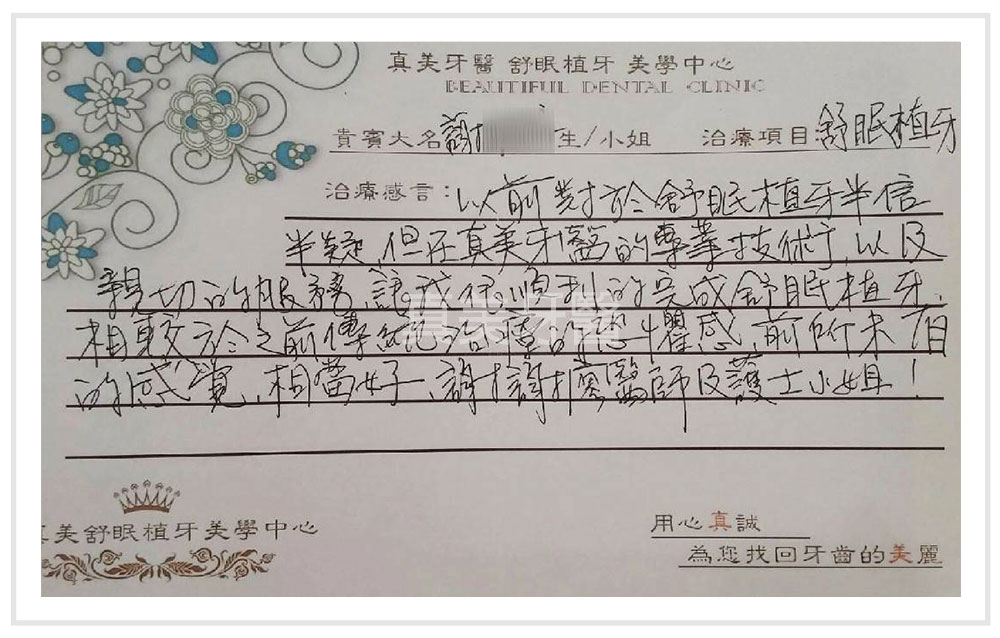 真美牙醫 舒眠植牙 美學中心
BEAUTIFUL DENTAL CLINIC
貴賓大名 謝 生/小姐 治療項目 舒眠植牙
治療感言：以前對於舒眠植牙半信
半疑，但在真美牙醫的專業技術，以及
親切的服務，讓我很順利的完成舒眠植牙，
相較於之前傳統治療的恐懼感，前所未有
的感覺，相當好，謝謝 醫師及護士小姐！
真美舒眠植牙美學中心
用心真誠
為您找回牙齒的美麗
真美牙醫